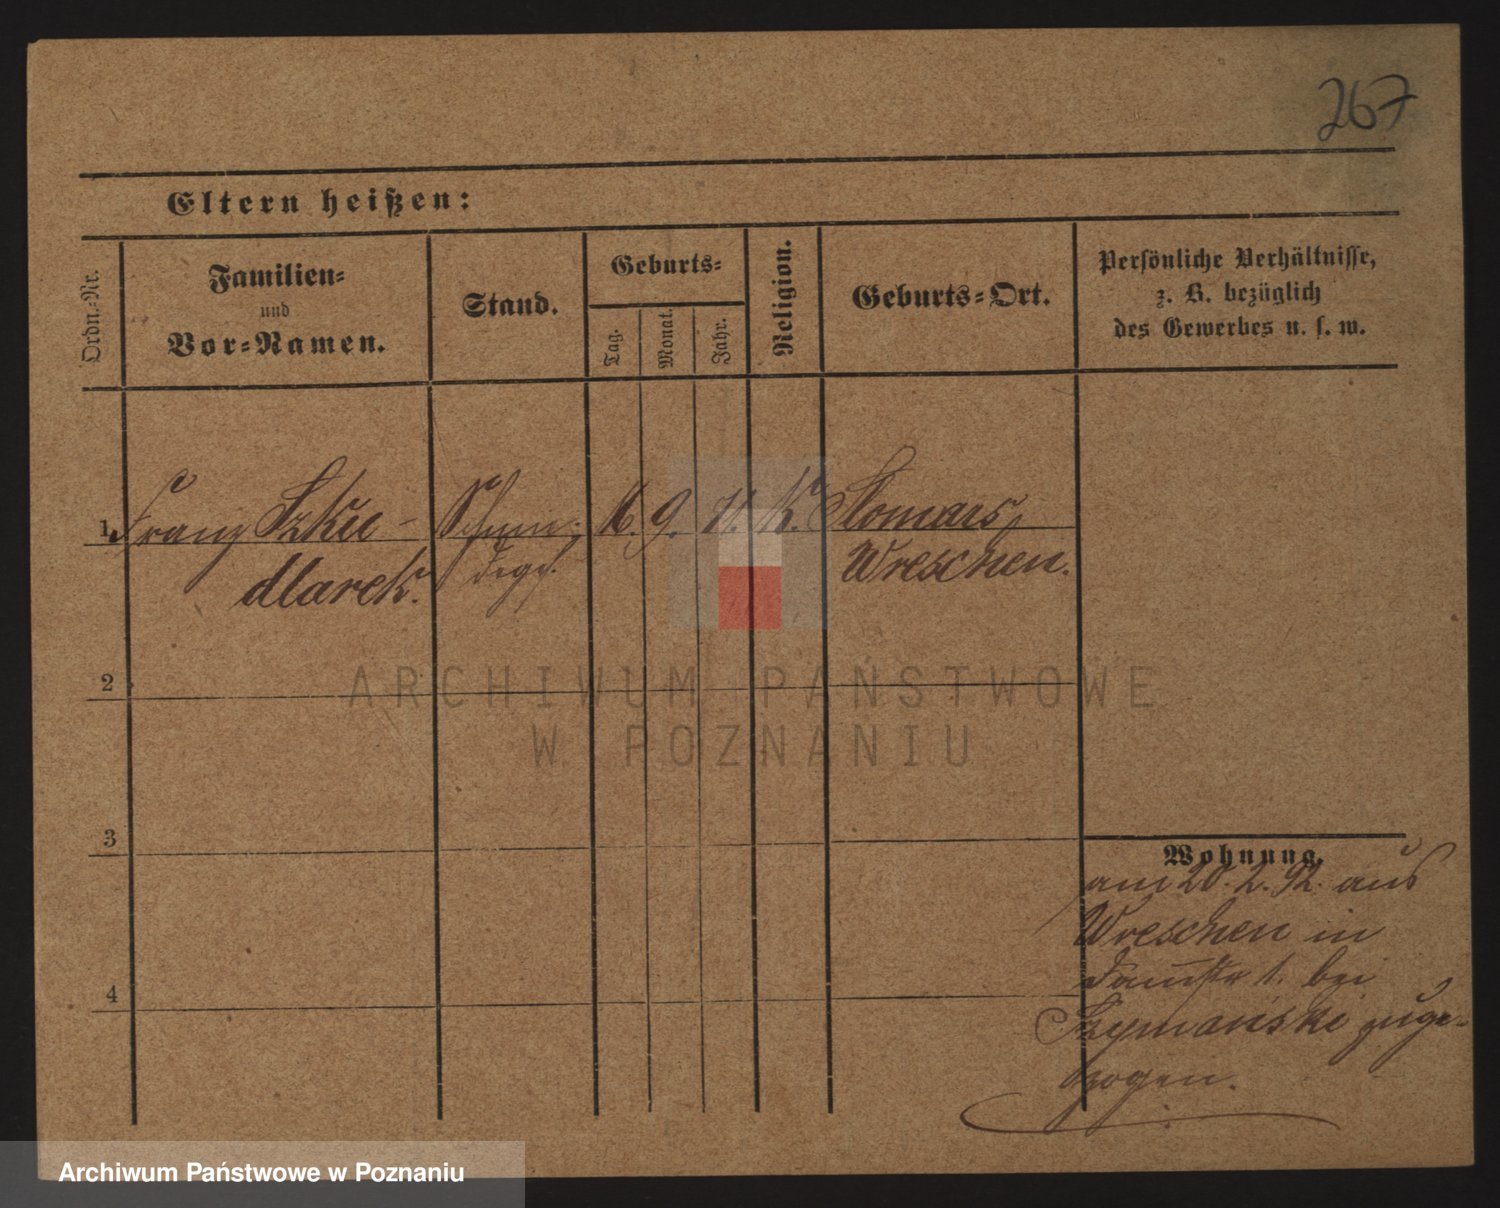 267
Eltern heißen:
Ordn.-Nr.
Familien-
und
Vor-Namen.
Stand.
Geburts-
Tag.
Monat.
Jahr.
Religion.
Geburts-Ort.
Persönliche Verhältnisse,
z. B. bezüglich
des Gewerbes u. s. w.
1 Franz Szku- 9. K.
dlarek. Wreschen.
2
3
4
Wohnung.
am 20. 2. 92. aus
Wreschen in
1. bei
Szymański zuge-
zogen.
ARCHIWUM PAŃSTWOWE
W POZNANIU
Archiwum Państwowe w Poznaniu